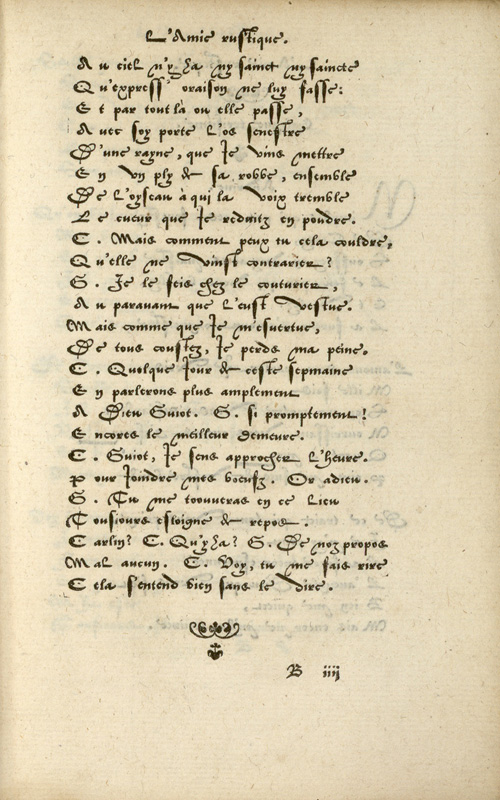 L'Amie rustique.
Au ciel n'y ha ny sainct ny saincte
Qu'express' oraison ne luy fasse:
Et par tout là ou elle passe,
Avec soy porte l'os senestre
D'une rayne, que Je vins mettre
En Un ply de sa robbe, ensemble
De l'oyseau à qui la Voix tremble
Le cueur que Je reduitz en pouldre.
C. Mais comment peux tu cela couldre,
Qu'elle ne Vinst contrarier?
G. Je le feis chez le couturier,
Au paravant que l'eust Vestue.
Mais comme que Je m'esvertue,
De tous coustez, Je perds ma peine.
C. Quelque Jour de ceste sepmaine
En parlerons plus amplement
A Dieu Guiot. G. si promptement!
Encores le meilleur demeure.
C. Guiot, Je sens approcher l'heure.
Pour Joindre mes boeufz. Or adieu.
G. Tu me trouveras en ce lieu
Tousiours esloigné de repos.
Carlin? C. Qu'y ha? G. De noz propos
Mal aucun. C. Voy, tu me fais rire
Cela s'entend bien sans le Dire.
B iiij